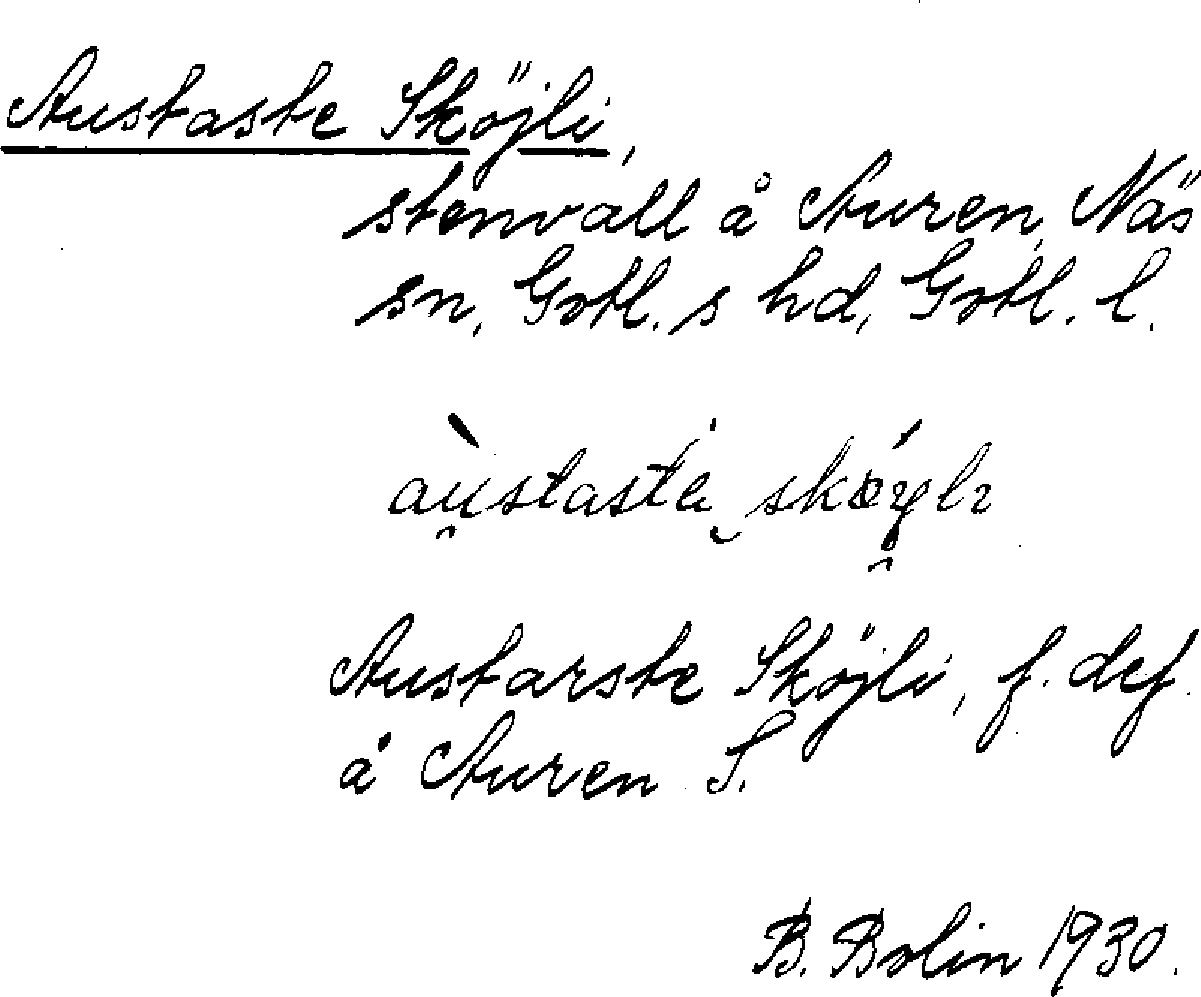 Austaste Sköjli,
stenvall å Auren, Näs
sn, Gotl. s hd, Gotl. l.
àu̯staste̮ skǿylı
Austarste Sköjli, f. def.
å Auren S.
B. Bolin 1930.